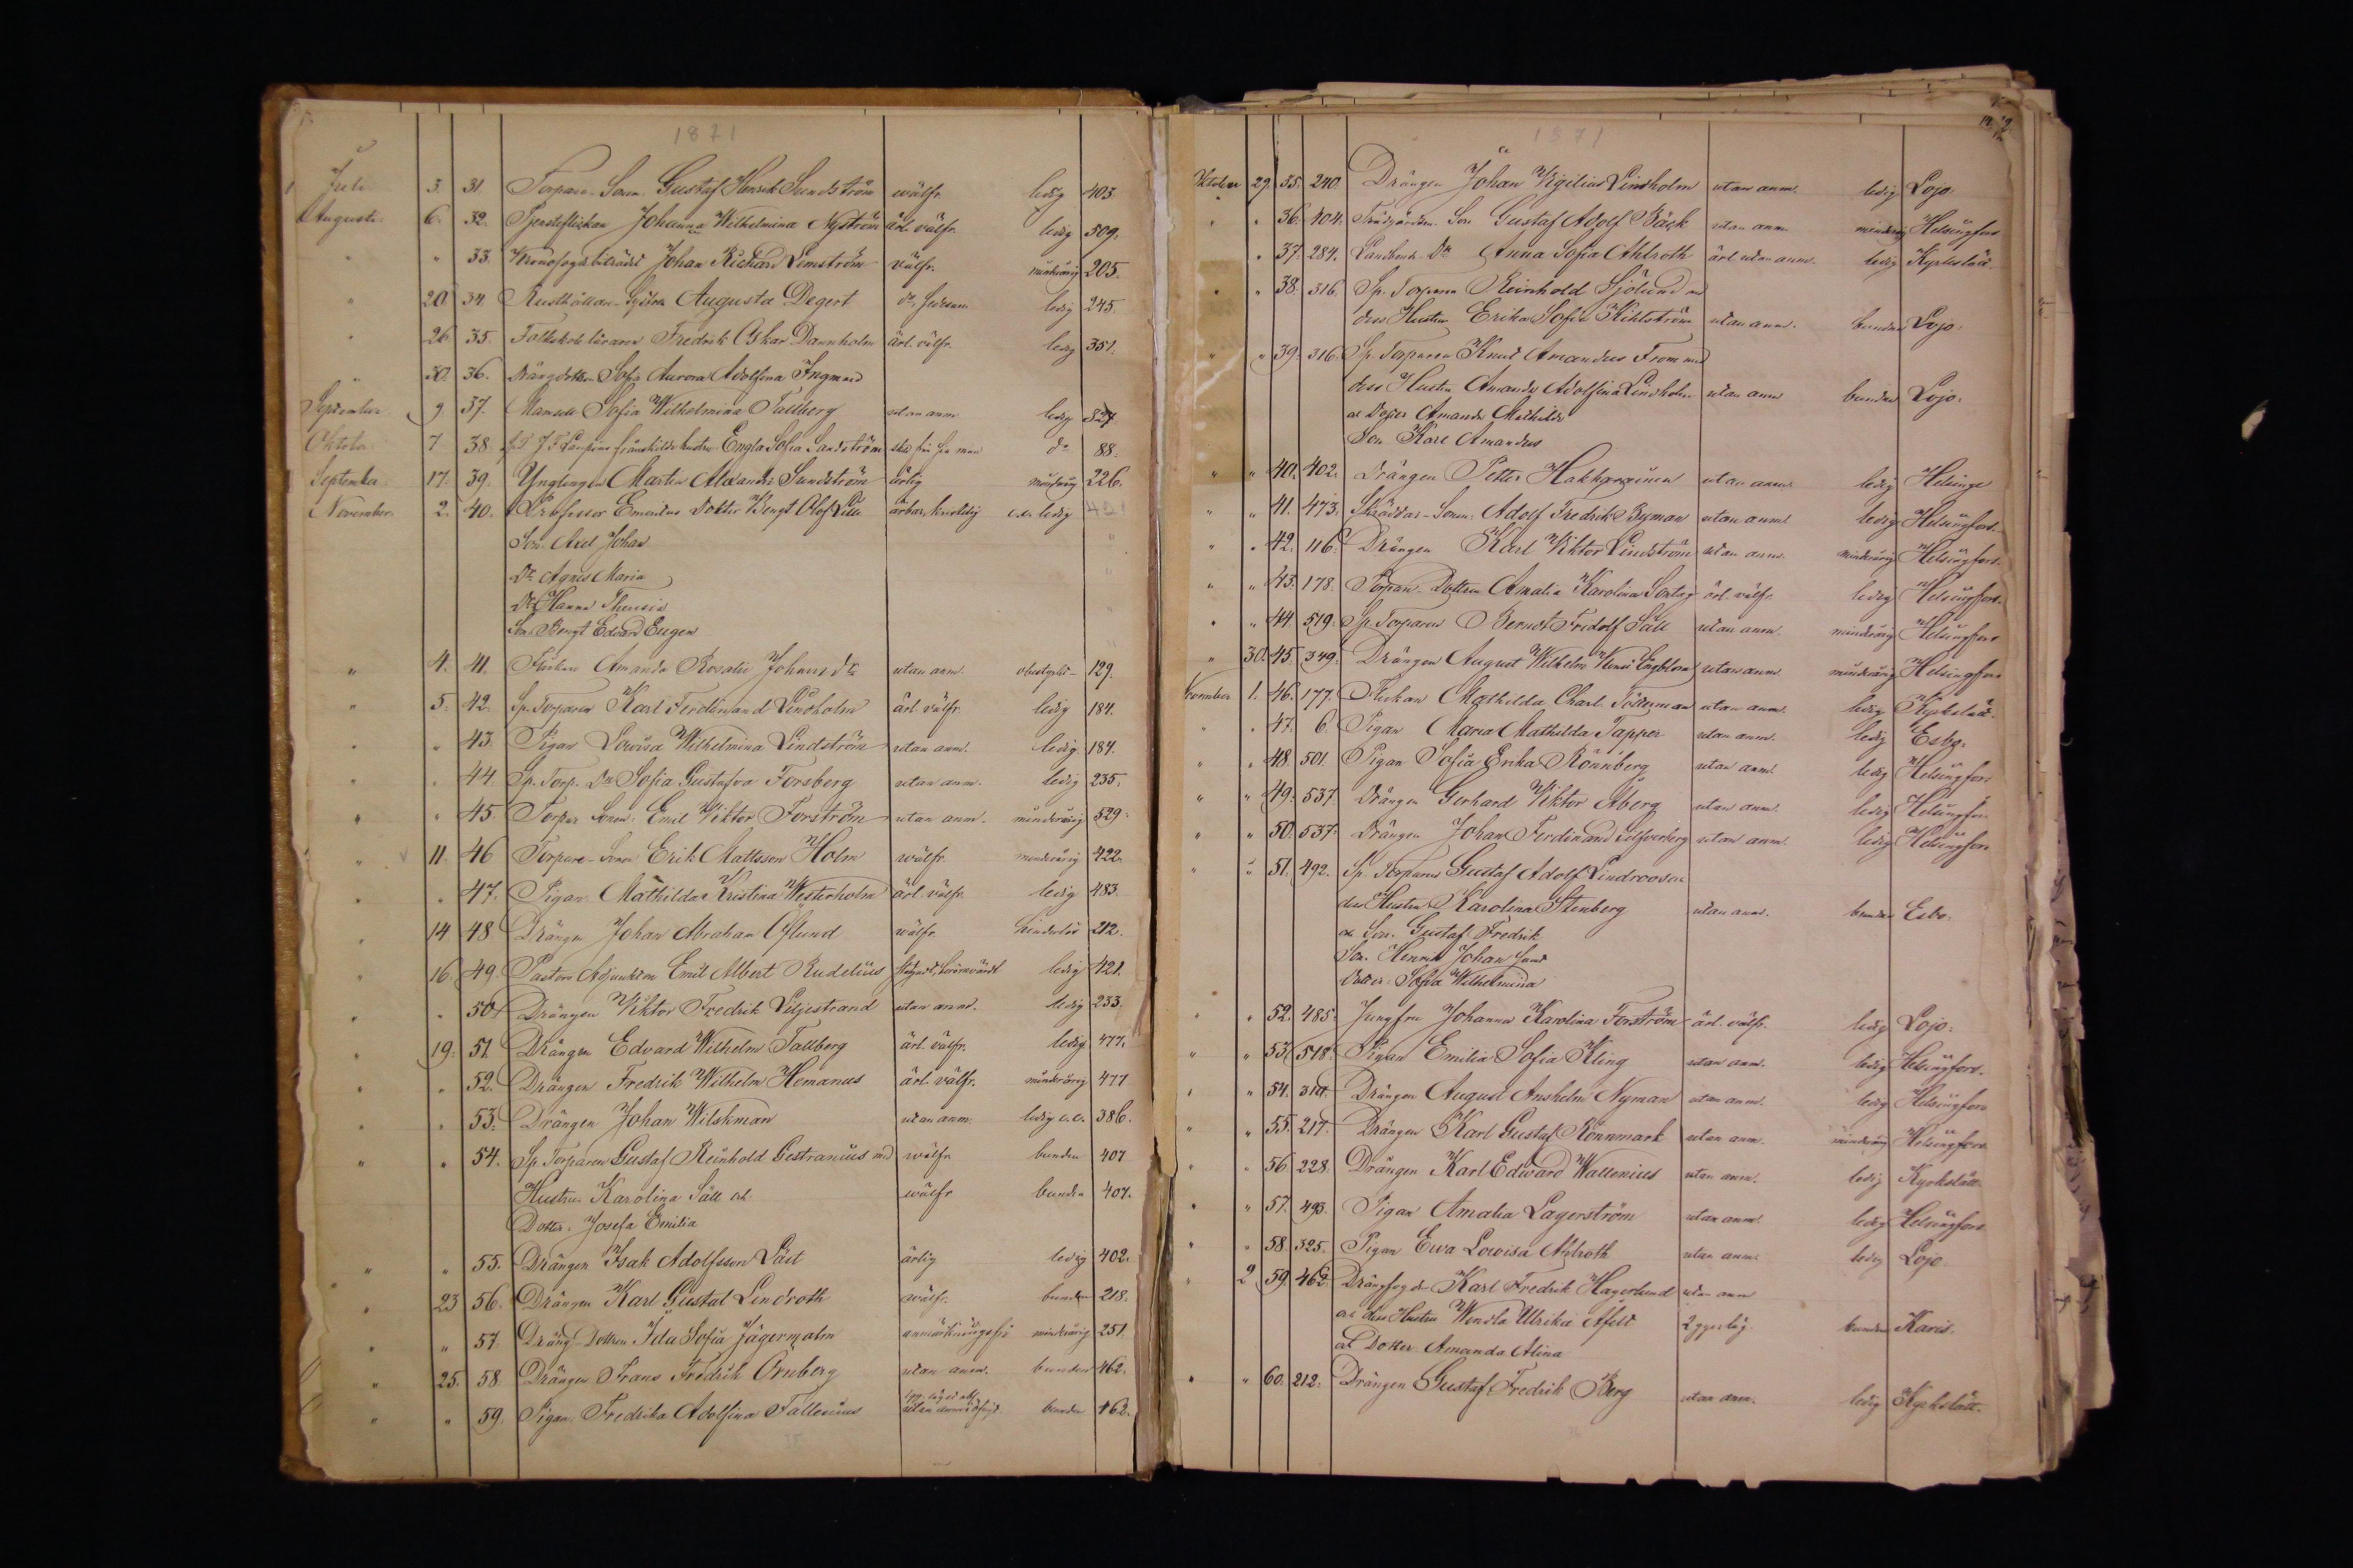 1871
Juli 3. 31. Torpare Sonen Gustaf Henrik Sundström wälfr. ledig 403.
Augusti 6. 32. Johanna Wilhelmina Nyström ärl. välfr. ledig 509.
" " 33. Kronofogdebiträdet Johan Richard Lemström välfr. minderårig 205.
" 20. 34. Rusthållare Augusta Degert ledig 245.
" 26. 35. Folkskoleläraren Fredrik Oskar Dannholm ärl. välfr. ledig 351.
" 30. 36. Drängdottern Sofia Aurora Adolfina Ingman
September 9. 37. Mamsell Sofia Wilhelmina Tallberg utan anm. ledig 527
Oktober 7 38. frånskilda hustru Engla Sofia Sandström do 88.
September 17. 39. Ynglingen Martin Alexander Sundström ärlig minderårig 226.
November 2. 40. Professor Emeritus Doktor Bengt Olof Lille ledig
Son Axel Johan "
Dr. Agnes Maria "
Dr. Hanna
Son Bengt Edvard Eugen
" 4. 41. Flickan Amanda Rosalie Johansdr utan anm. 129.
" 5. 42. Sp. Torparen Karl Ferdinand Lindholm ärl. välfr. ledig 184.
" " 43. Pigan Lowisa Wilhelmina Lindström utan anm. ledig 184.
" " 44. Sp. Torp. Dr. Sofia Gustafva Forsberg utan anm. ledig 235.
" " 45. Torpar Sonen Emil Viktor Forström utan anm. minderårig 529.
" 11. 46 Torpare-Sonen Erik Mattsson Holm wälfr. minderårig 422.
" " 47. Pigan Mathilda Kristina Westerholm ärl. välfr. ledig 483.
" 14 48 Drängen Johan Abraham Öflund wälfr. hinderlös 212.
" 16 49. Pastors Adjunkten Emil Albert Rudelius ledig 421.
" " 50. Drängen Viktor Fredrik Liljestrand utan anm. ledig 233.
" 19. 51. Drängen Edvard Wilhelm Tallberg ärl. välfr. ledig 477.
" " 52. Drängen Fredrik Wilhelm Homanus ärl. välfr. minderårig 477
" " 53. Drängen Johan Wilskman utan anm. ledig 386.
" " 54. Sp. Torparen Gustaf Reinhold Gestranius med wälfr. bunden 407
Hustru Karolina Säll och wälfr. bunden 407.
Dotter Josefa Emilia
" " 55. Drängen Isak Adolfsson Läit ärlig ledig 402.
" 23 56. Drängen Karl Gustaf Lindroth wälfr. bunden 218.
" " 57. Dräng Dottren Ida Sofia Jägermalm anmärkningsfri minderårig 251.
" 25. 58. Drängen Frans Fredrik Örnberg utan anm. bunden 462.
" " 59. Pigan Fredrika Adolfina Fallenius bunden 462.
1871
Oktober 29. 35. 240. Drängen Johan Vigilius Lindholm utan anm. ledig Lojo.
" " 36. 404. Son Gustaf Adolf Bäck utan anm. minderårig Helsingfors
" 37. 284. Anna Sofia Ahlroth ärl. utan anm. ledig Kyrkslätt.
" " 38. 316. Sp. Torparen Reinhold Sjölund med
dess Hustru Erika Sofia Kihlström utan anm. bunden Lojo.
" " 39. 316. Sp. Torparen Knut Amandus From med
dess Hustru Amanda Adolfina Lindholm utan anm bunden Lojo.
o. Dotter Amanda Mathilda
Son Karl Amandus
" " 40. 402. Drängen Petter Hakkarainen utan anm. ledig Helsinge
" " 41. 473. Skräddar-Sonen Adolf Fredrik Byman utan anm. ledig Helsingfors.
" " 42. 116. Drängen Karl Viktor Lindström utan anm. minderårig Helsingfors.
" " 43. 178. Torpare Dottern Amalia Karolina ärl. välfr. ledig Helsingfors.
" " 44. 519. Sp. Torparen Berndt Fridolf Säll utan anm. minderårig Helsingfors
" 30. 45. 349. Drängen August Wilhelm Engblom utan anm. minderårig Helsingfors
November 1. 46. 177 Flickan Mathilda Charl. Söderman utan anm. ledig Kyrkslätt.
" " 47. 6. Pigan Maria Mathilda Tapper utan anm. ledig Esbo.
" " 48. 501. Pigan Sofia Erika Rönnberg utan anm. ledig Helsingfors
" " 49. 537. Drängen Gerhard Viktor Åberg utan anm. ledig Helsingfors
" " 50. 537. Drängen Johan Ferdinand Silfverberg utan anm. ledig Helsingfors
" " 51. 492. Sp. Torparen Gustaf Adolf Lindroosen
dess Hustru Karolina Stenberg utan anm. bunden Esbo.
o. Son. Gustaf Fredrik
Son. Henrik Johan samt
Dotter. Sofia Wilhelmina
" " 52. 485. Jungfru Johanna Karolina Forström ärl. välfr. ledig Lojo.
" " 53. 518. Pigan Emilia Sofia Kling utan anm. ledig Helsingfors.
" " 54. 310. Drängen August Anshelm Nyman utan anm. ledig Helsingfors
" " 55. 217. Drängen Karl Gustaf Rönnmark utan anm. minderårig Helsingfors
" " 56. 228. Drängen Karl Edward Wallenius utan anm. ledig Kyrkslätt.
" " 57. 493. Pigan Amalia Lagerström utan anm. ledig Helsingfors
" " 58. 325. Pigan Ewa Lowisa Nylroth utan anm. ledig Lojo.
" 2 59. 462. Drängfogden Karl Fredrik Hagerlund utan anm
och dess Hustru Wendla Ulrika Afelt bunden Karis.
och Dotter Amanda Alina
" " 60. 212. Drängen Gustaf Fredrik Berg utan anm. ledig Kyrkslätt.